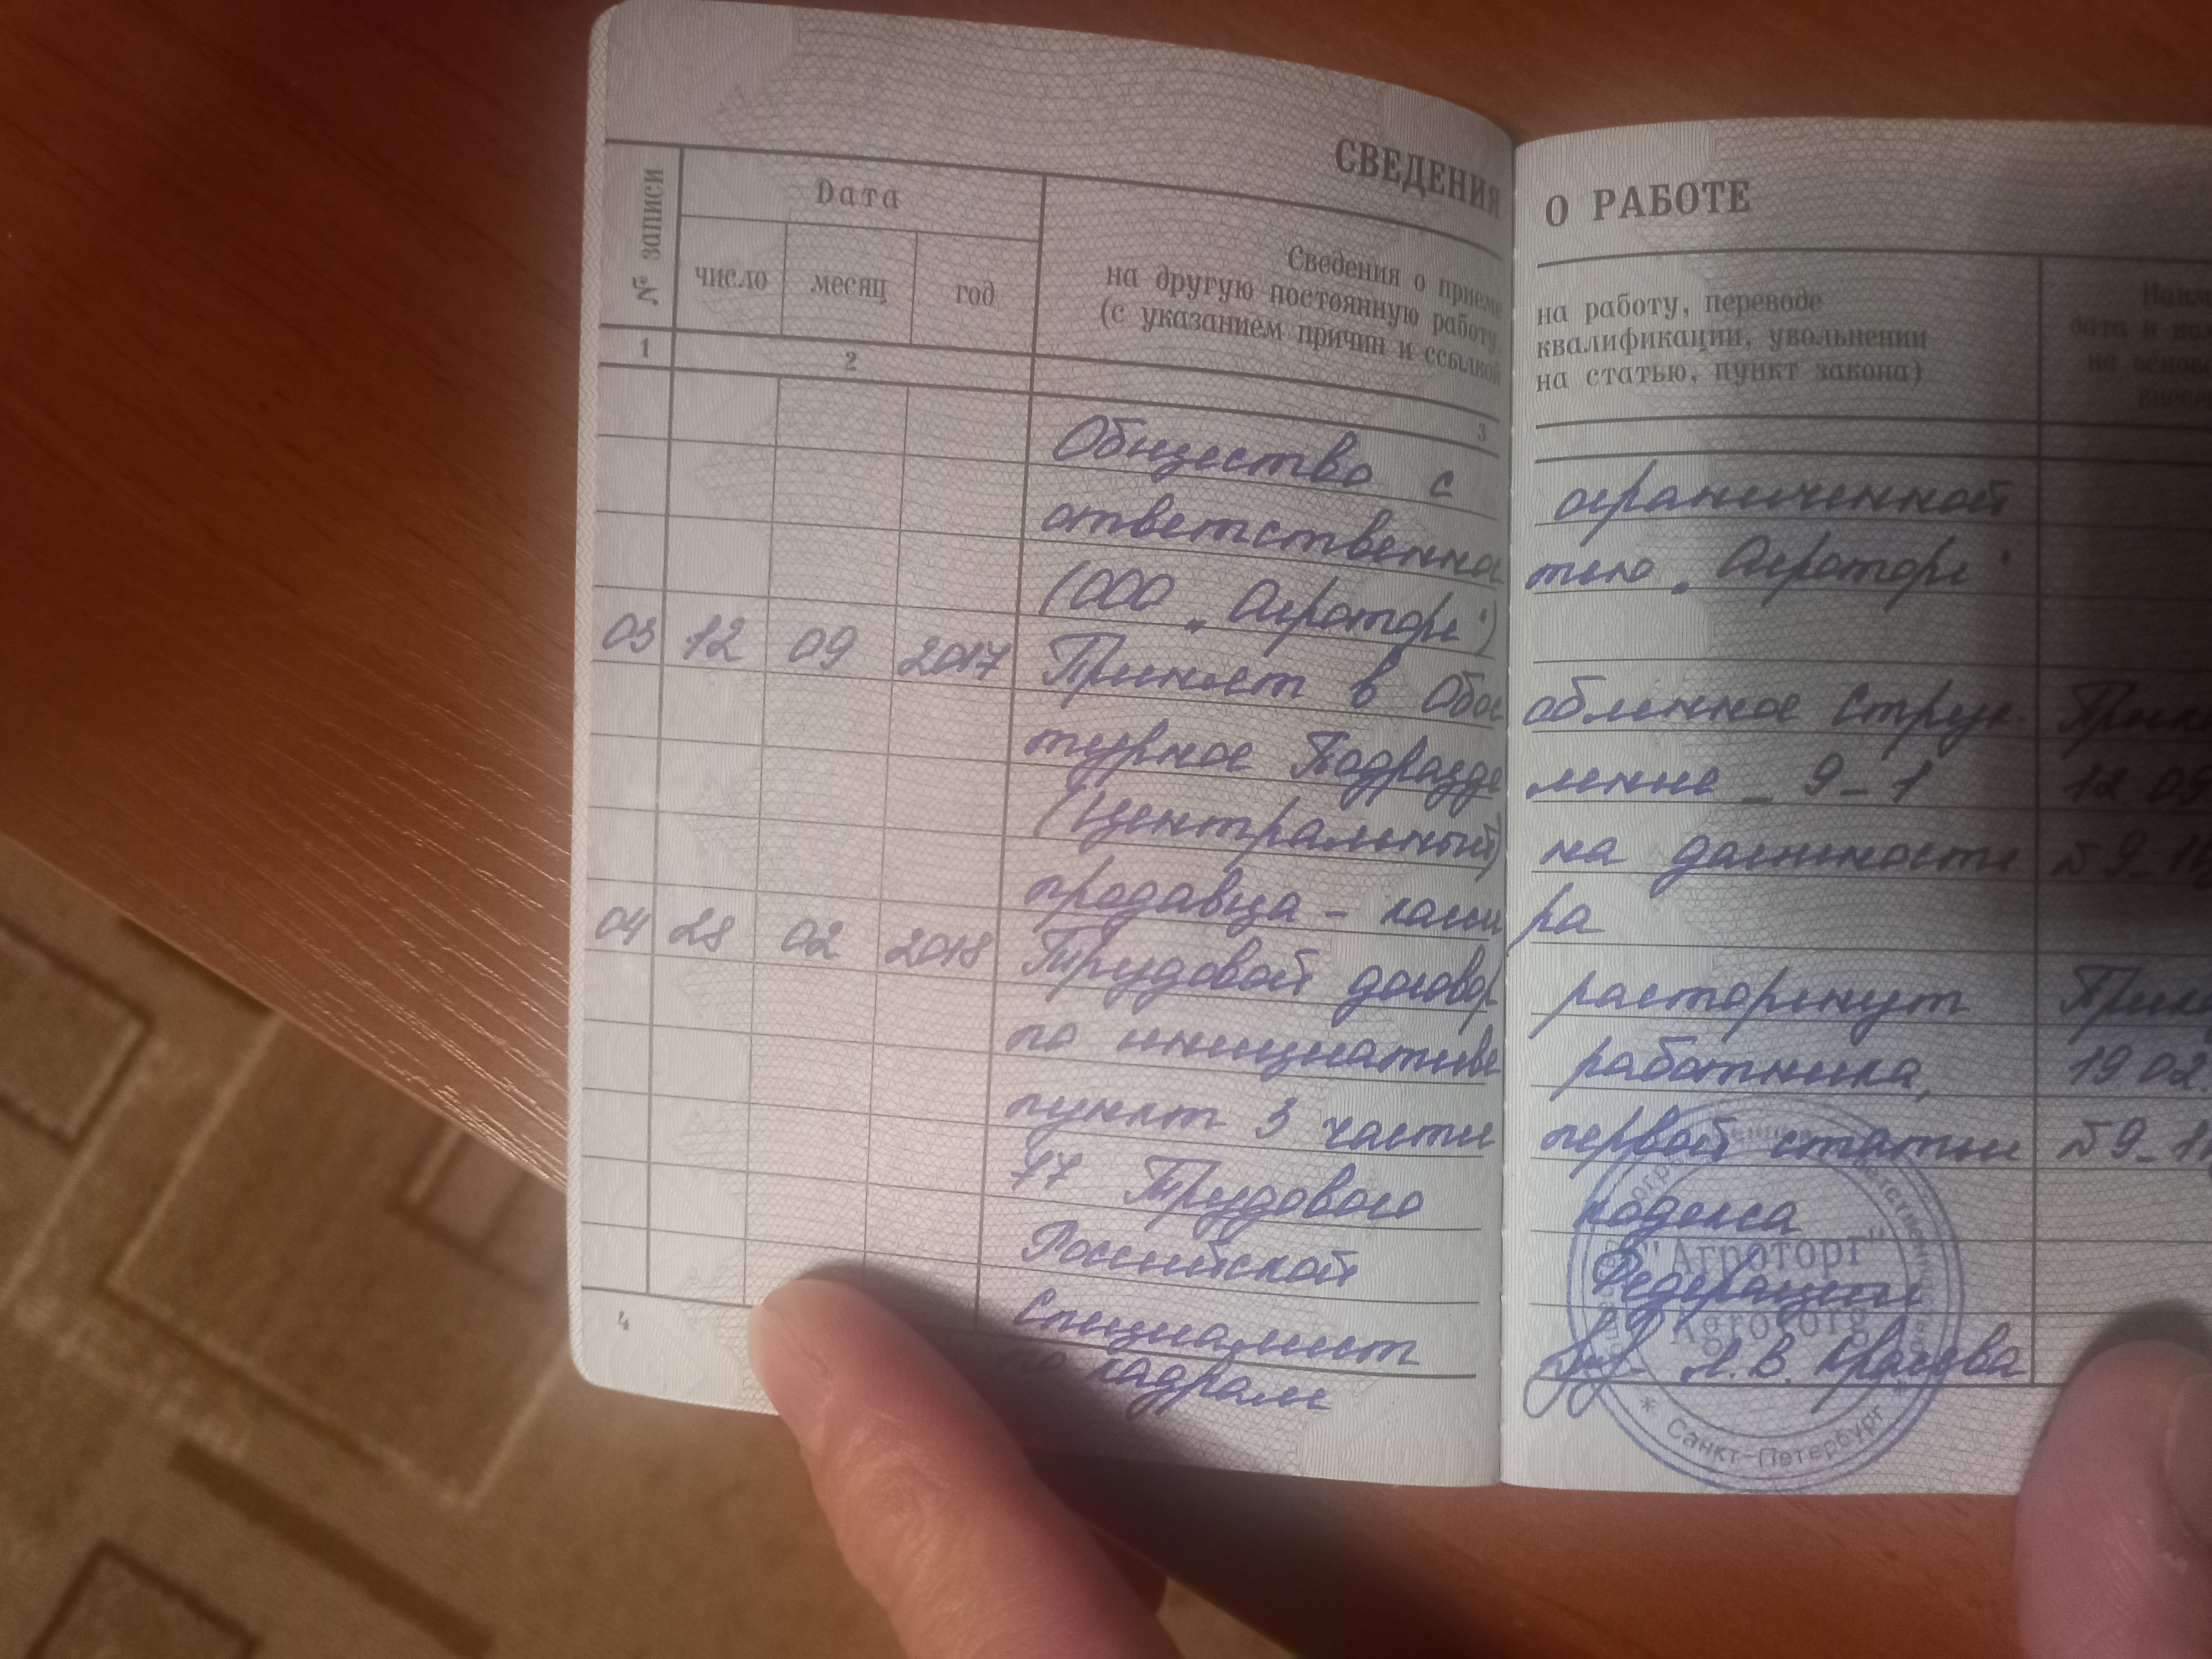 СВЕДЕНИЯ О РАБОТЕ
№ записи
Дата
число месяц год
Сведения о приеме на работу, переводе
на другую постоянную работу, квалификации, увольнении
(с указанием причин и ссылкой на статью, пункт закона)
1 2 3
Общество с ограниченной
ответственностью „Агроторг“
(ООО „Агроторг“)
03 12 09 2017 Принят в Обособленное Струк-
турное Подразделение _ 9_1 12 09
(Центральный) на должность №9_
продавца - кассира
04 28 02 2018 Трудовой договор расторгнут
по инициативе работника, 19 02
пункт 3 части первой статьи №9_
77 Трудового кодекса
Российской Федерации
Специалист
по кадрам
4
"Агроторг"
"Agrotorg"
* Санкт-Петербург *